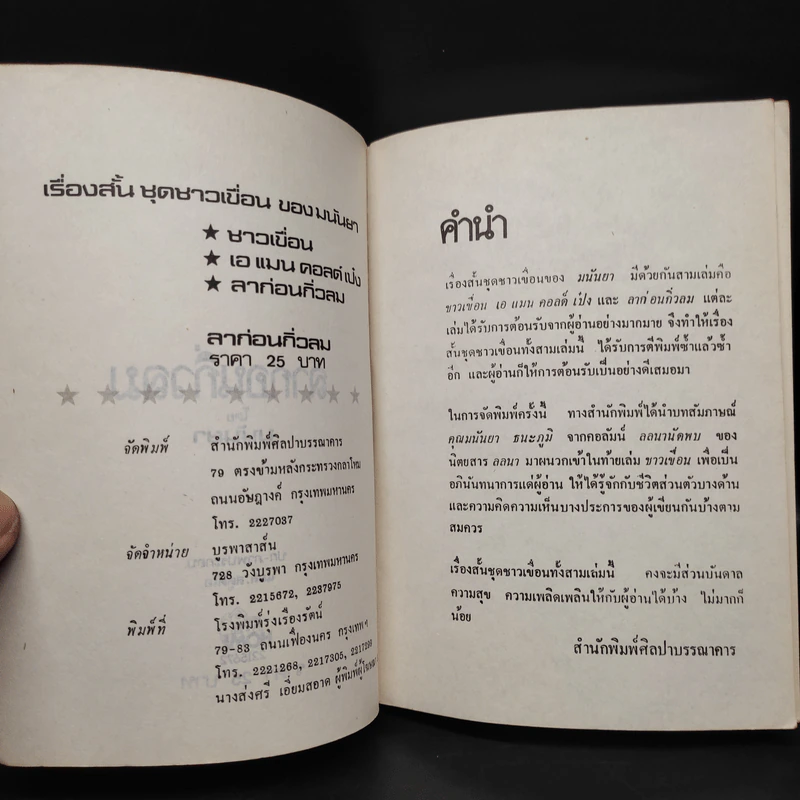 เรื่องสั้น ชุดชาวเขื่อน ของ มนันยา
★ ชาวเขื่อน
★ เอ แมน คอลด์ เป๋ง
★ ลาก่อนกิ่วลม
ลาก่อนกิ่วลม
ราคา 25 บาท
จัดพิมพ์ สำนักพิมพ์ศิลปาบรรณาคาร
79 ตรงข้ามหลังกระทรวงกลาโหม
ถนนอัษฎางค์ กรุงเทพมหานคร
โทร. 2227037
จัดจำหน่าย บูรพาสาส์น
728 วังบูรพา กรุงเทพมหานคร
โทร. 2215672, 2237975
พิมพ์ที่ โรงพิมพ์รุ่งเรืองรัตน์
79-83 ถนนเฟื่องนคร กรุงเทพ ฯ
โทร. 2221268, 2217305, 2217269
นางส่งศรี เอี่ยมสอาด ผู้พิมพ์ผู้โฆษณา
คำนำ
เรื่องสั้นชุดชาวเขื่อนของ มนันยา มีด้วยกันสามเล่มคือ
ชาวเขื่อน เอ แมน คอลด์ เป๋ง และ ลาก่อนกิ่วลม แต่ละ
เล่มได้รับการต้อนรับจากผู้อ่านอย่างมากมาย จึงทำให้เรื่อง
สั้นชุดชาวเขื่อนทั้งสามเล่มนี้ ได้รับการตีพิมพ์ซ้ำแล้วซ้ำ
อีก และผู้อ่านก็ให้การต้อนรับเป็นอย่างดีเสมอมา
ในการจัดพิมพ์ครั้งนี้ ทางสำนักพิมพ์ได้นำบทสัมภาษณ์
คุณมนันยา ธนะภูมิ จากคอลัมน์ ลลนานัดพบ ของ
นิตยสาร ลลนา มาผนวกเข้าในท้ายเล่ม ชาวเขื่อน เพื่อเป็น
อภินันทนาการแด่ผู้อ่าน ให้ได้รู้จักกับชีวิตส่วนตัวบางด้าน
และความคิดความเห็นบางประการของผู้เขียนกันบ้างตาม
สมควร
เรื่องสั้นชุดชาวเขื่อนทั้งสามเล่มนี้ คงจะมีส่วนบันดาล
ความสุข ความเพลิดเพลินให้กับผู้อ่านได้บ้าง ไม่มากก็
น้อย
สำนักพิมพ์ศิลปาบรรณาคาร